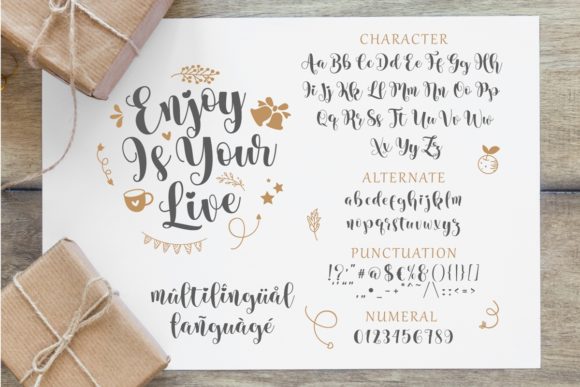 Enjoy
Is Your
Live
mûltilingüål
lañguàgé
CHARACTER
Aa Bb Cc Dd Ee Ff Gg Hh
Ii Jj Kk Ll Mm Nn Oo Pp
Qq Rr Ss Tt Uu Vv Ww
Xx Yy Zz
ALTERNATE
abcdefghijklm
nopqrstuvwxyz
PUNCTUATION
!?'"#@$€%&(){}[]
NUMERAL
0123456789